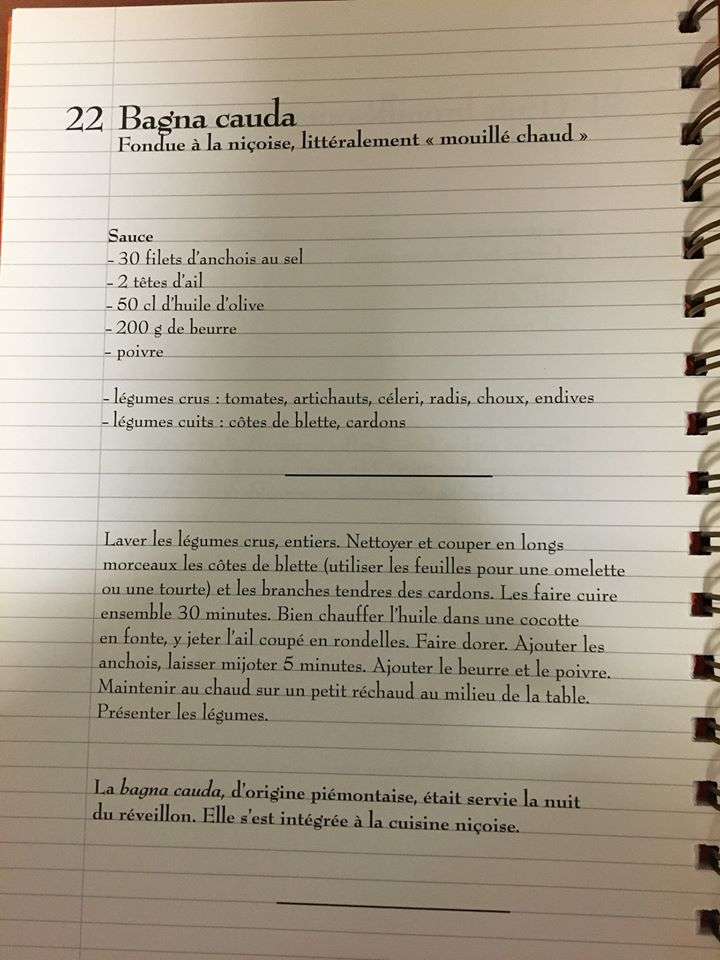 22 Bagna cauda
Fondue à la niçoise, littéralement « mouillé chaud »
Sauce
- 30 filets d'anchois au sel
- 2 têtes d'ail
- 50 cl d'huile d'olive
- 200 g de beurre
- poivre
- légumes crus : tomates, artichauts, céleri, radis, choux, endives
- légumes cuits : côtes de blette, cardons
Laver les légumes crus, entiers. Nettoyer et couper en longs
morceaux les côtes de blette (utiliser les feuilles pour une omelette
ou une tourte) et les branches tendres des cardons. Les faire cuire
ensemble 30 minutes. Bien chauffer l'huile dans une cocotte
en fonte, y jeter l'ail coupé en rondelles. Faire dorer. Ajouter les
anchois, laisser mijoter 5 minutes. Ajouter le beurre et le poivre.
Maintenir au chaud sur un petit réchaud au milieu de la table.
Présenter les légumes.
La bagna cauda, d'origine piémontaise, était servie la nuit
du réveillon. Elle s'est intégrée à la cuisine niçoise.